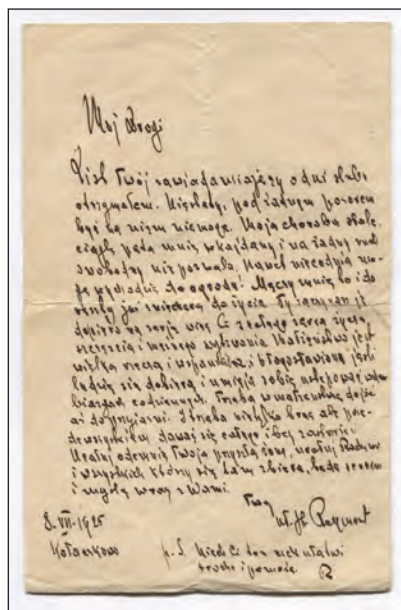 Mój Drogi
List Twój zawiadamiający o dniu ślubu
otrzymałem. Niestety, pod żadnym pozorem
być na nim nie mogę. Moja choroba stale,
ciągle pęta mnie w kajdany i na żadny ruch
swobodny nie pozwala. Nawet nie codzień mo-
gę wychodzić do ogrodu! Męczy mnie to i do
reszty już zniechęca do życia. Ty zaczynasz je
dopiero na serio więc Ci z całego serca życzę
szczęścia i wytrwania. Małżeństwo jest
wielką rzeczą i wspaniałą, i błogosławioną jeśli
ludzie się dobiorą i umieją sobie ustępować w dro-
biazgach codziennych. Trzeba w małżeństwie
być przyjaciółmi. I trzeba nie tylko brać ale prze-
dewszystkim dawać się całego i bez zastrzeżeń.
Uściskaj odemnie Twoją przyszłą żonę,
i wszystkich którzy się tam zbiorą, będę sercem
i myślą wraz z Wami.
Twój
Wł. St. Reymont
8. VII. 1925
Kołaczkowo
p. S. Niech Ci ten czek ułatwi
trochę i pomoże.
R